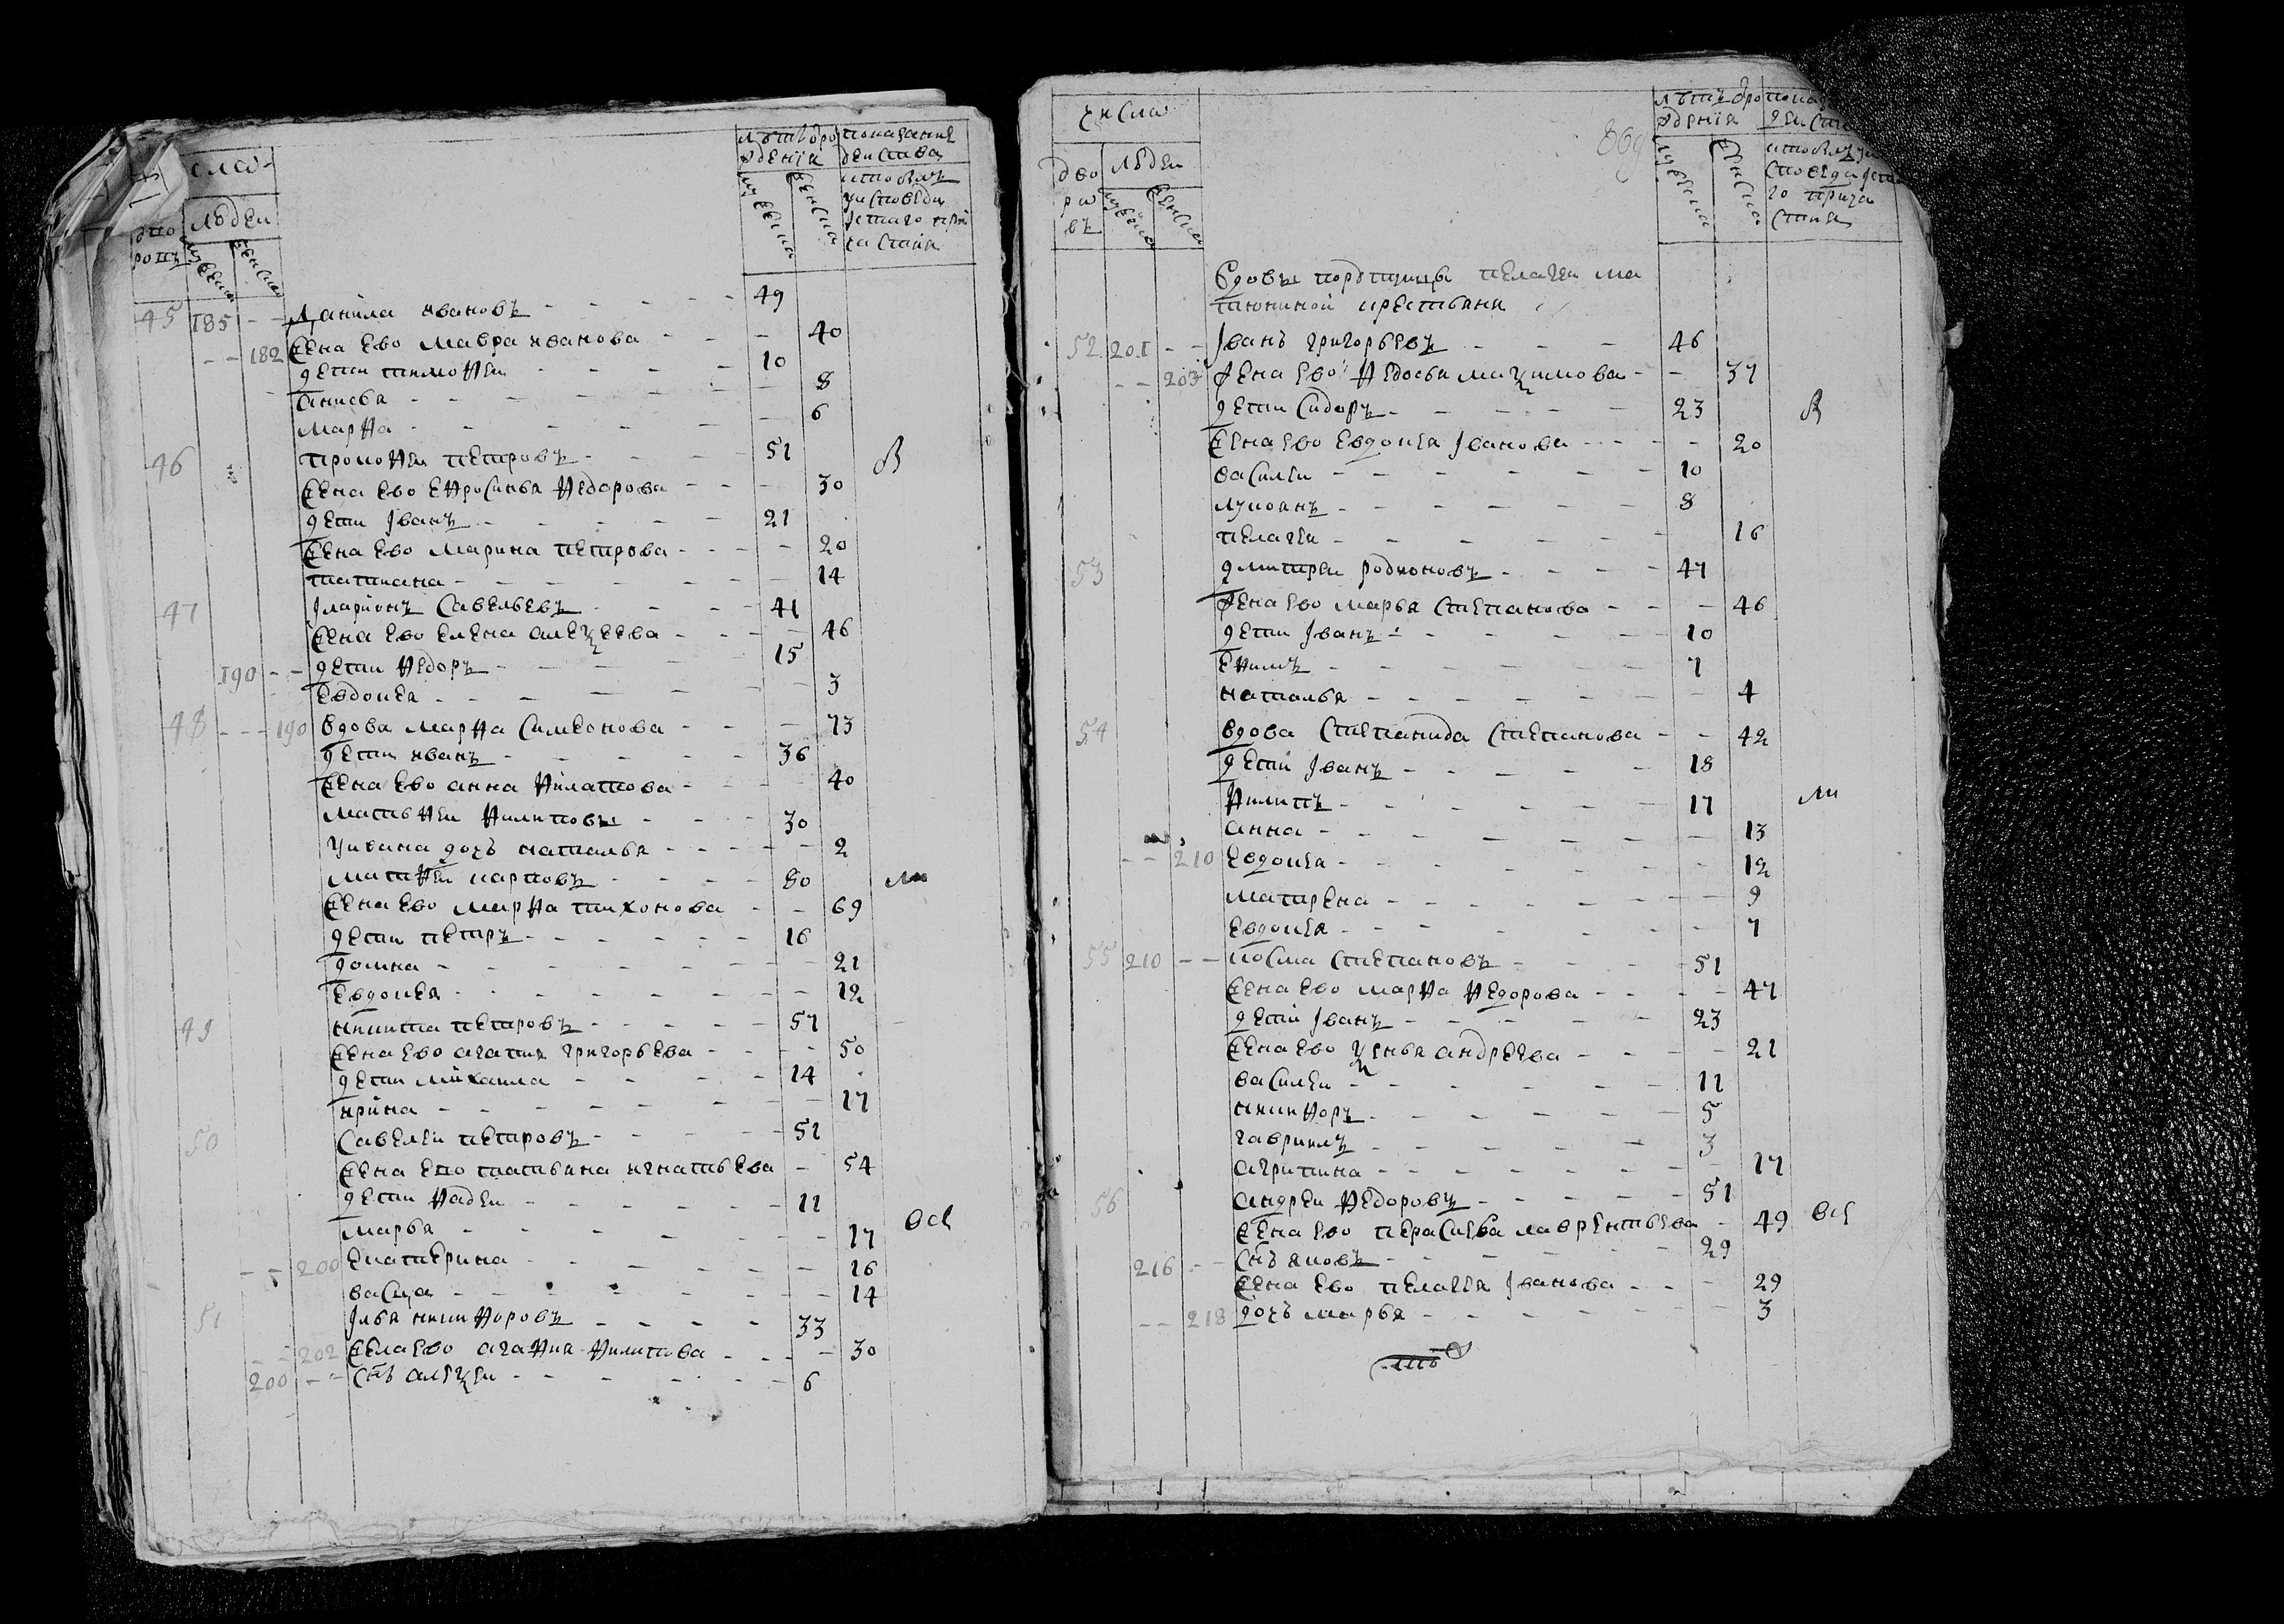 числа
лѣтъ от ро
ждения
показание
действа
людеи
дво
ровъ
мужеска
женска
мужеска
женска
кто былъ
у исповеди
45 185 - - Данила ивановъ - - - - 49
- - 182 жена ево мавра иванова - - - 40
дети тимофеи - - - - 10
анисья - - - - - - 8
марфа - - - - - - 6
46 прокофеи петровъ - - - 51
жена ево ефросинья федорова - - - 30
дети Iванъ - - - - - 21
жена ево марина петрова - - - 20
татиана - - - - - - - 14
47 Iларионъ савельевъ - - - - 41
жена ево елена алеѯеева - - - - 46
190 - - дети федоръ - - - - - 15
евдокея - - - - - - - 3
48 - - - 190 вдова марфа симеонова - - - 73
дети иванъ - - - - - 36
жена ево анна филатова - - - 40
матвфеи филиповы - - - 30
у ивана дочь наталья - - - - - 2
матфеи карповъ - - - - 80 ли
жена ево марфа тихонова - - 69
дети петръ - - - - - - 16
домна - - - - - - - 21
евдокея - - - - - - - 12
49 никита петровъ - - - - - 57
жена ево агапия григорьева - - - - 50
дети михаила - - - - 14
ирина - - - - - - - - 17
50 савелеи петровъ - - - - - 51
жена ево татьяна игнатьева - 54
дети фадеи - - - - - - 11
марья - - - - - - - - 17 всѣ
- - 200 екатерина - - - - - - 16
васса - - - - - - - - 14
51 Iлья никифоровъ - - - - 33
- - 202 жена ево агафия филипова - - - - 30
200 - - сынъ алеѯеи - - - - - - 6
числа
869
лѣтъ от ро
ждения
дво
ро
въ
людеи
мужеска
женска
мужеска
женска
кто былъ у и
споведи и свята
го прича
стия
вдовы порутчицы пелагеи ма
тюниной крестьяня
52 201 - - Iванъ григорьевъ - - - 46
- - 203 жена ево федосья маѯимова - - 37
дети сидоръ - - - - - 23
жена ево евдокея Iванова - - - - - 20
василеи - - - - - - - 10
лукоянъ - - - - - - 8
пелагеи - - - - - - - 16
53 дмитреи родионовъ - - - - 47
жена ево марья степанова - - - 46
дети Iванъ - - - - - - 10
ефимъ - - - - - - 7
наталья - - - - - - - 4
54 вдова степанида степанова - - 42
дети Iванъ - - - - - 18
филипъ - - - - - - 17 ли
анна - - - - - - - 13
- - 210 евдокея - - - - - - 12
матрена - - - - - - - 9
евдокея - - - - - - - 7
55 210 - - косма степановъ - - - - 51
жена ево марфа федорова - - - - 47
дети Iванъ - - - - - 23
жена ево ѯенья андреева - - - - 21
василеи - - - - - - - 11
никифоръ - - - - - - 5
гаврилъ - - - - - - 3
агрипина - - - - - - - 17
56 андреи федоровъ - - - - - 51
жена ево перасковья лаврентьева - 49 всѣ
216 - - снъ яковъ - - - - - - 29
жена ево пелагея Iванова - - - 29
- - 218 дочь марья - - - - - - 3